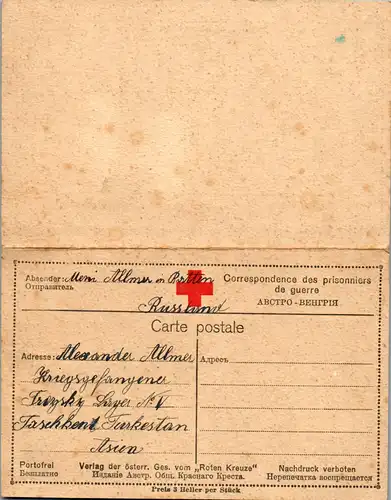 Absender: Meni Allmer in Ratten Correspondence des prisonniers
Отправитель de guerre
Russland АВСТРО-ВЕНГРІЯ
Carte postale
Adresse: Alexander Allmer Адресъ
Kriegsgefangener
Troizky Lager № V
Taschkent Turkestan
Asien
Portofrei Verlag der österr. Ges. vom „Roten Kreuze“ Nachdruck verboten
Безплатно Изданіе Австр. Общ. Краснаго Креста. Перепечатка воспрещается
Preis 3 Heller per Stück